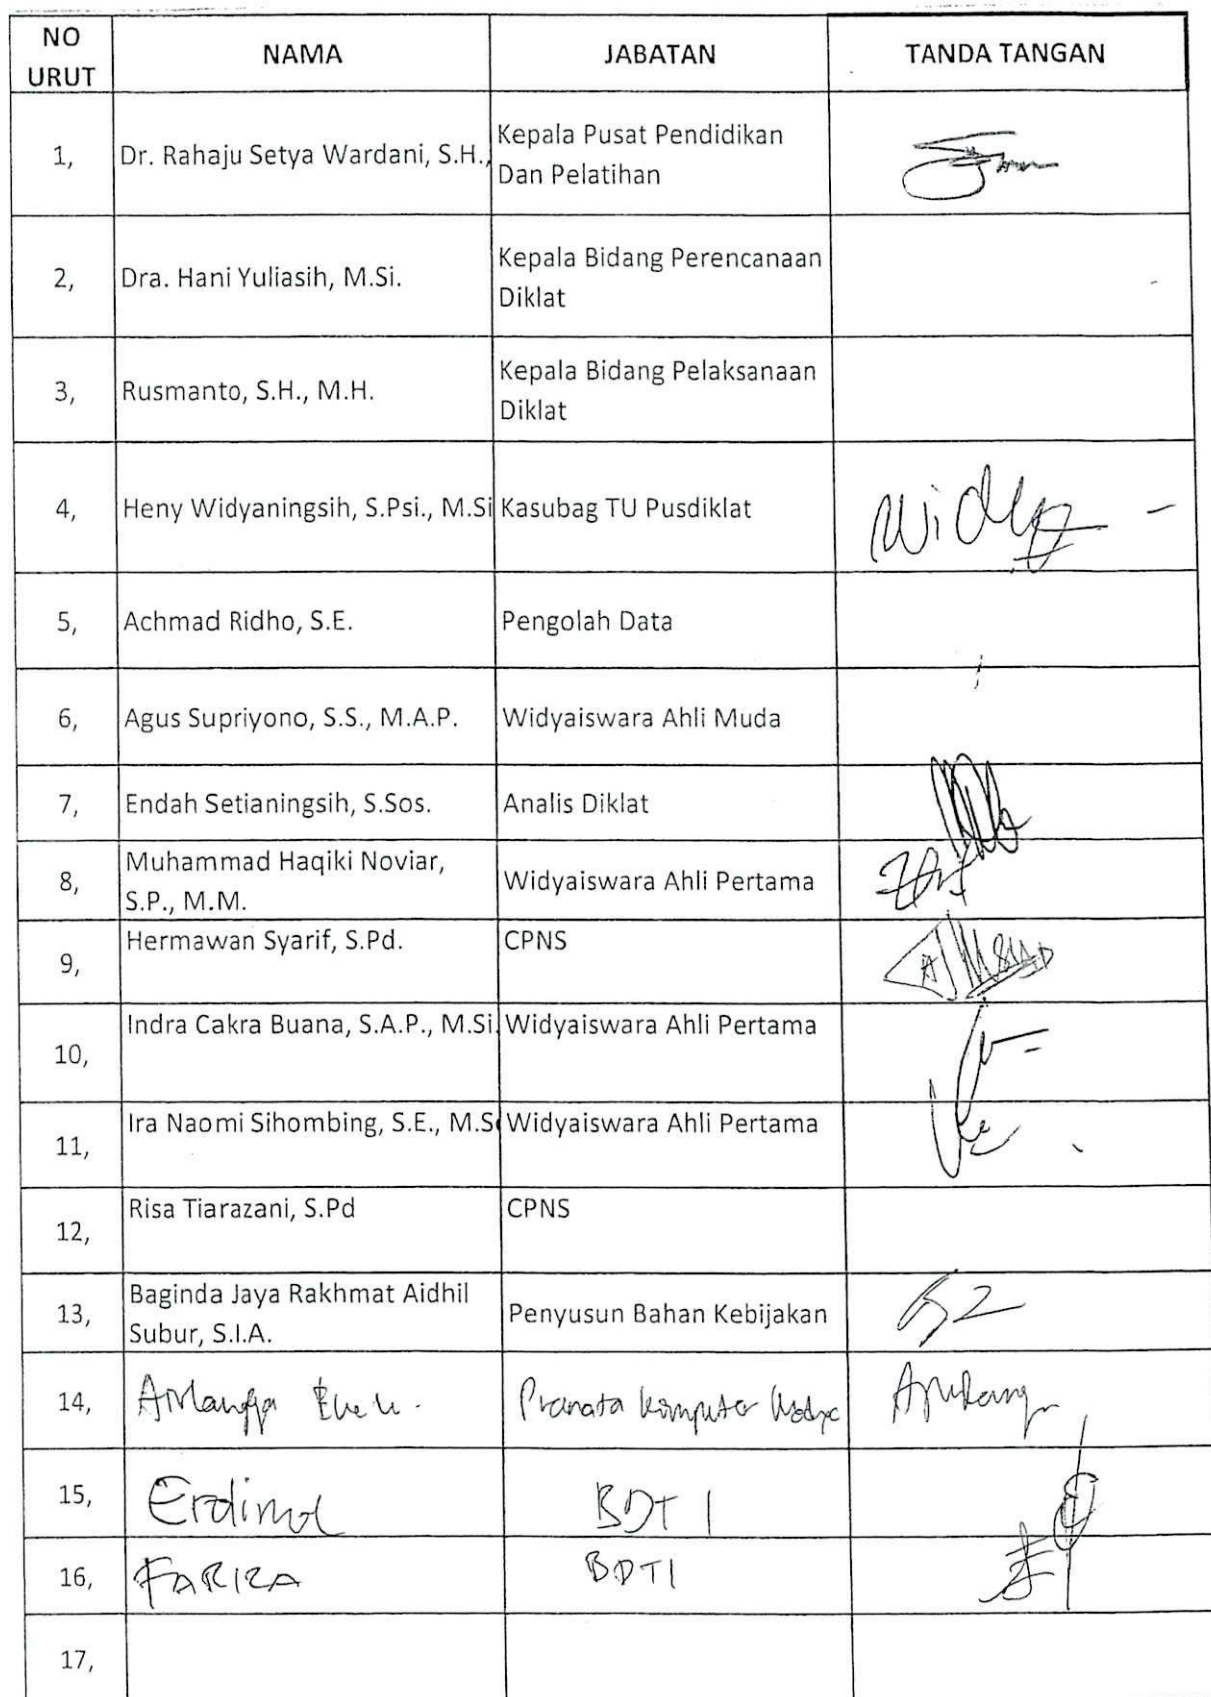 NO URUT NAMA JABATAN TANDA TANGAN
1, Dr. Rahaju Setya Wardani, S.H., Kepala Pusat Pendidikan
Dan Pelatihan
2, Dra. Hani Yuliasih, M.Si. Kepala Bidang Perencanaan
Diklat
3, Rusmanto, S.H., M.H. Kepala Bidang Pelaksanaan
Diklat
4, Heny Widyaningsih, S.Psi., M.Si Kasubag TU Pusdiklat
5, Achmad Ridho, S.E. Pengolah Data
6, Agus Supriyono, S.S., M.A.P. Widyaiswara Ahli Muda
7, Endah Setianingsih, S.Sos. Analis Diklat
8, Muhammad Haqiki Noviar, Widyaiswara Ahli Pertama
S.P., M.M.
9, Hermawan Syarif, S.Pd. CPNS
10, Indra Cakra Buana, S.A.P., M.Si. Widyaiswara Ahli Pertama
11, Ira Naomi Sihombing, S.E., Widyaiswara Ahli Pertama
12, Risa Tiarazani, S.Pd CPNS
13, Baginda Jaya Rakhmat Aidhil Penyusun Bahan Kebijakan
Subur, S.I.A.
14, Pranata Komputer
15, BDTI
16, FARIZA BDTI
17,